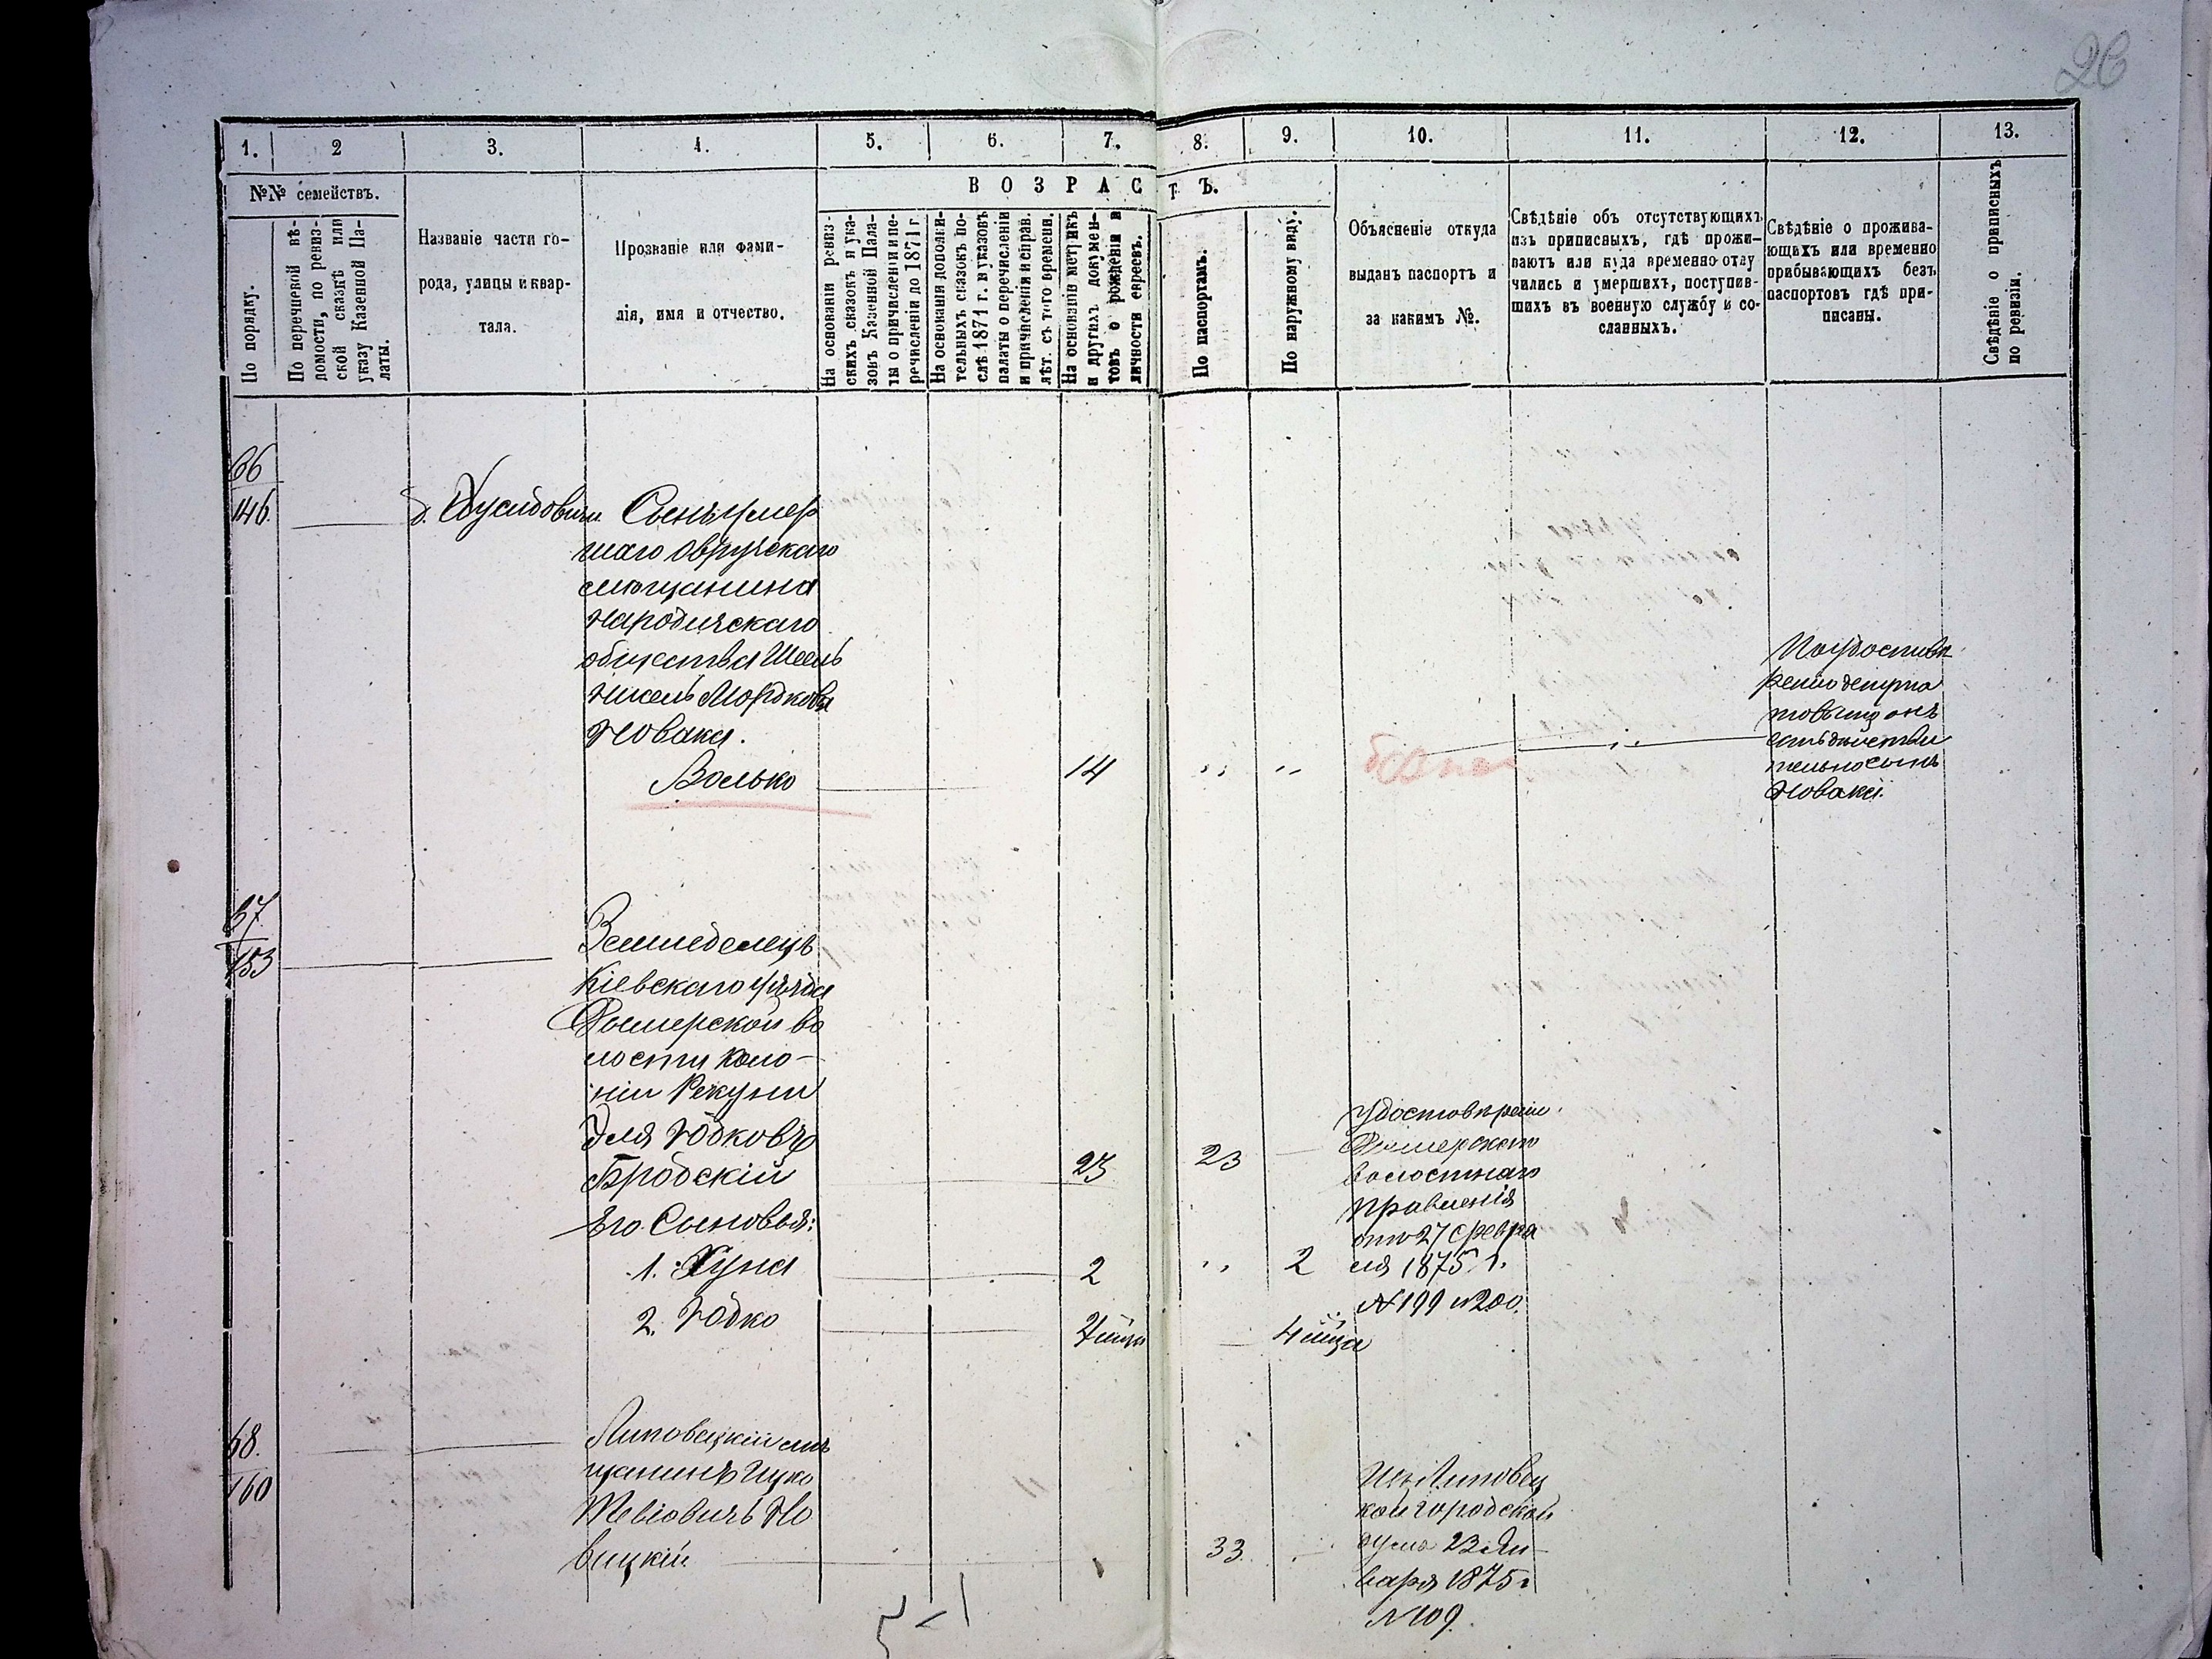 26
1. 2 3. 4. 5. 6. 7. 8. 9. 10. 11. 12. 13.
№№ семействъ.
ВОЗРАСТЪ.
По порядку.
По перечневой вѣ-
домости, по ревиз-
ской сказкѣ или
указу Казенной Па-
латы.
Названіе части го-
рода, улицы и квар-
тала.
Прозваніе или фами-
лія, имя и отчество.
На основаніи ревиз-
скихъ сказокъ и ука-
зовъ Казенной Пала-
ты о причисленіи и пе-
речисленіи до 1871 г.
На основаніи дополни-
тельныхъ сказокъ по-
слѣ 1871 г. и указовъ
палаты о перечисленіи
и причисленіи и справ.
лѣт. съ того времени.
На основаніи метрикъ
и другихъ докумен-
товъ о рожденіи и
личности евреевъ.
По паспортамъ.
По наружному виду.
Объясненіе откуда
выданъ паспортъ и
за какимъ №.
Свѣдѣніе объ отсутствующихъ
изъ приписныхъ, гдѣ прожи-
ваютъ или куда временно отлу
чились и умершихъ, поступив-
шихъ въ военную службу и со-
сланныхъ.
Свѣдѣніе о прожива-
ющихъ или временно
прибывающихъ безъ
паспортовъ гдѣ при-
писаны.
Свѣдѣніе о приписныхъ
по ревизіи.
66
146.
Сынъ умер
шаго Овручскаго
мѣщанина
Народичскаго
общества
Мордковы
Новака.
Волько
14
" "
депута
товъ что онъ
дѣйстви
тельно сынъ
Новака.
67
153
Земледелецъ
Кіевскаго уѣзда
Дымерской во
лости коло-
ніи Рекуни
Эля Юдковъ
Бродскій
23 23
Его Сыновья:
1. Хуна 2 " 2
2. Юдко 4 мца
Удостовѣреніе
Дымерскаго
волостнаго
правленія
отъ 27 Февра
ля 1875 г.
№ 199 и 200.
68.
160
Липовецкій мѣ
щанинъ Ицко
Тевіовичъ Но
вицкій 33.
Изъ Липовец
кой городской
думы 23 Ян-
варя 1875 г
№ 109.